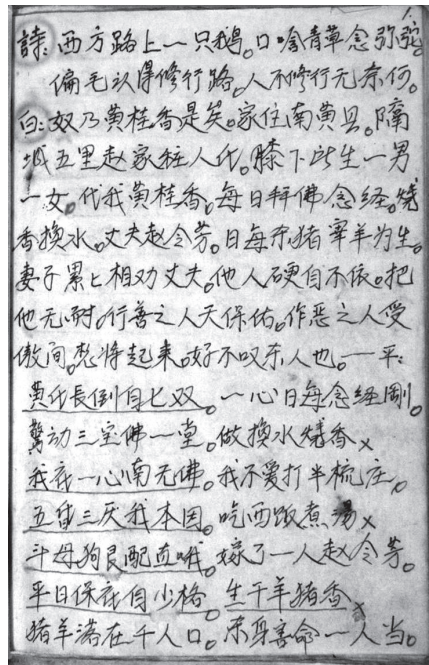 詩:西方路上一只鹅。口唅青草念弥陀
偏毛认得修行路。人不修行无奈何。
白:奴乃黄桂香是矣。家住南黄县。隔
城五里赵家庄人氏。膝下所生一男
一女。代我黄桂香。每日拜佛念经。燒
香换水。丈夫赵令芳。日每杀猪宰羊为生。
妻子累々相劝丈夫。他人硬自不依。把
他无耐。行善之人天保佑。作恶之人受
傲间。愁将起来。好不叹杀人也。一平:
黄氏長倒自七双。一心日每念经剛。
驚动三宝佛一堂。做换水燒香
我在一心南无佛。我不爱打半梳庄。
五皆三厌我本因。吃西饭煮湯
斗母狗良配直哦。嫁了一人赵令芳。
平日保在自少格。生干羊猪香
猪羊落在千人口。杀身害命一人当。